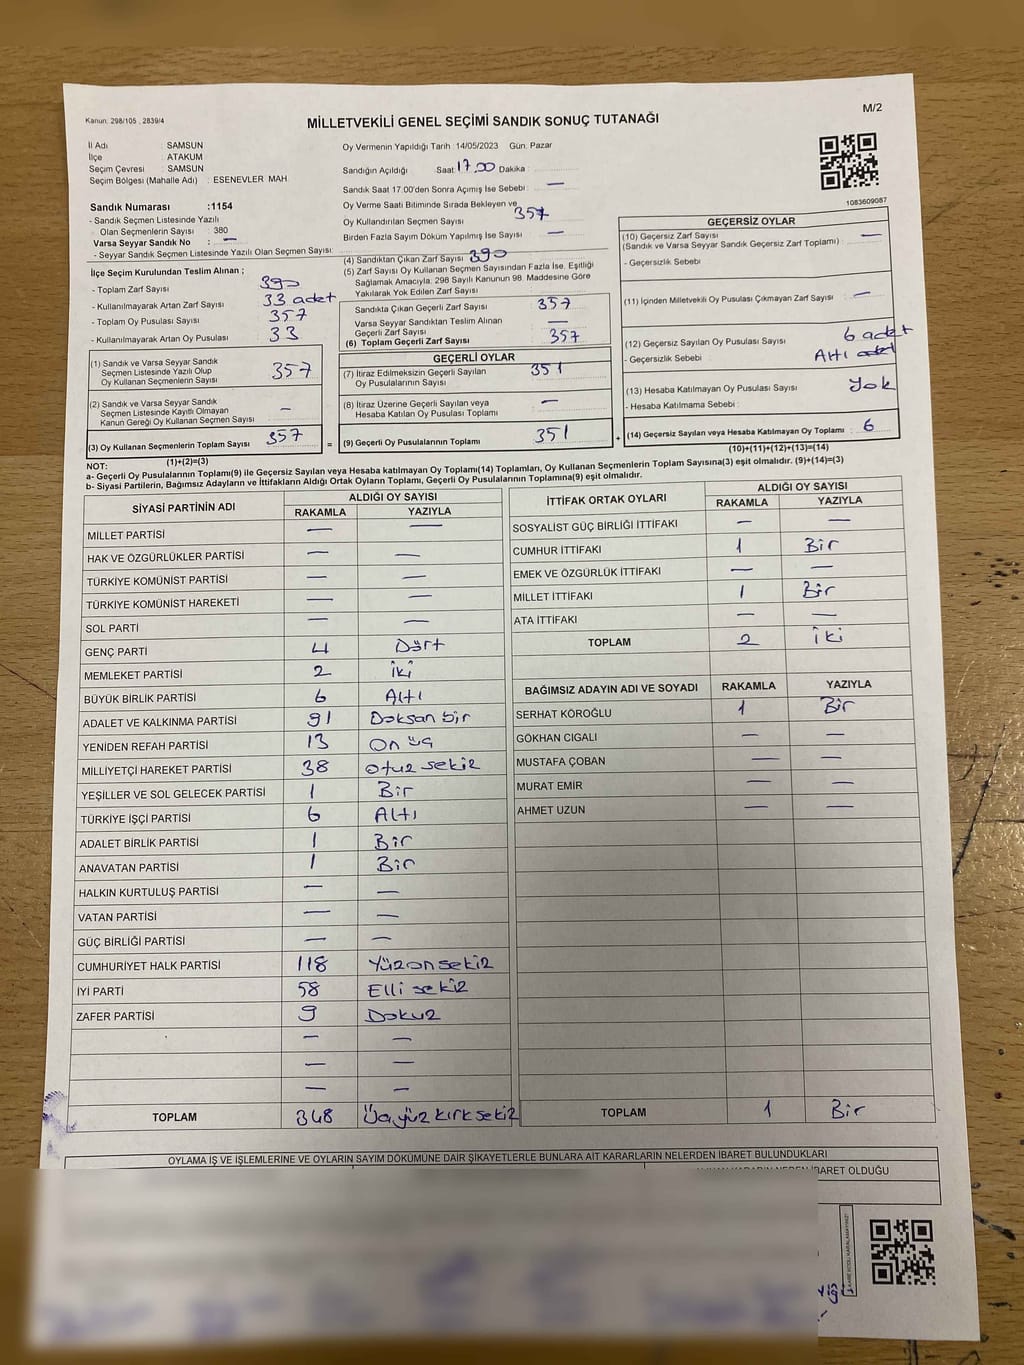 Kanun: 298/105 , 2839/4
M/2
MİLLETVEKİLİ GENEL SEÇİMİ SANDIK SONUÇ TUTANAĞI
İl Adı : SAMSUN
İlçe : ATAKUM
Seçim Çevresi : SAMSUN
Seçim Bölgesi (Mahalle Adı) : ESENEVLER MAH.
Sandık Numarası :1154
- Sandık Seçmen Listesinde Yazılı
Olan Seçmenlerin Sayısı : 380
Varsa Seyyar Sandık No : —
- Seyyar Sandık Seçmen Listesinde Yazılı Olan Seçmen Sayısı:
Oy Vermenin Yapıldığı Tarih :14/05/2023 Gün: Pazar
Sandığın Açıldığı : Saat 17.00 Dakika :
Sandık Saat 17:00'den Sonra Açımış İse Sebebi : —
Oy Verme Saati Bitiminde Sırada Bekleyen ve
Oy Kullandırılan Seçmen Sayısı : 357
Birden Fazla Sayım Döküm Yapılmış İse Sayısı : —
1083609087
İlçe Seçim Kurulundan Teslim Alınan ;
- Toplam Zarf Sayısı : 390
- Kullanılmayarak Artan Zarf Sayısı : 33 adet
- Toplam Oy Pusulası Sayısı : 357
- Kullanılmayarak Artan Oy Pusulası : 33
(1) Sandık ve Varsa Seyyar Sandık
Seçmen Listesinde Yazılı Olup
Oy Kullanan Seçmenlerin Sayısı : 357
(2) Sandık ve Varsa Seyyar Sandık
Seçmen Listesinde Kayıtlı Olmayan
Kanun Gereği Oy Kullanan Seçmen Sayısı : —
(3) Oy Kullanan Seçmenlerin Toplam Sayısı : 357
(1)+(2)=(3)
(4) Sandıktan Çıkan Zarf Sayısı : 390
(5) Zarf Sayısı Oy Kullanan Seçmen Sayısından Fazla İse, Eşitliği
Sağlamak Amacıyla; 298 Sayılı Kanunun 98. Maddesine Göre
Yakılarak Yok Edilen Zarf Sayısı :
Sandıkta Çıkan Geçerli Zarf Sayısı : 357
Varsa Seyyar Sandıktan Teslim Alınan
Geçerli Zarf Sayısı : —
(6) Toplam Geçerli Zarf Sayısı : 357
GEÇERLİ OYLAR
(7) İtiraz Edilmeksizin Geçerli Sayılan
Oy Pusulalarının Sayısı : 351
(8) İtiraz Üzerine Geçerli Sayılan veya
Hesaba Katılan Oy Pusulası Toplamı : —
= (9) Geçerli Oy Pusulalarının Toplamı : 351
GEÇERSİZ OYLAR
(10) Geçersiz Zarf Sayısı
(Sandık ve Varsa Seyyar Sandık Geçersiz Zarf Toplamı) : —
- Geçersizlik Sebebi :
(11) İçinden Milletvekili Oy Pusulası Çıkmayan Zarf Sayısı : —
(12) Geçersiz Sayılan Oy Pusulası Sayısı : 6 adet
- Geçersizlik Sebebi : Altı adet
(13) Hesaba Katılmayan Oy Pusulası Sayısı : Yok
- Hesaba Katılmama Sebebi :
+ (14) Geçersiz Sayılan veya Hesaba Katılmayan Oy Toplamı : 6
(10)+(11)+(12)+(13)=(14)
NOT:
a- Geçerli Oy Pusulalarının Toplamı(9) ile Geçersiz Sayılan veya Hesaba katılmayan Oy Toplamı(14) Toplamları, Oy Kullanan Seçmenlerin Toplam Sayısına(3) eşit olmalıdır. (9)+(14)=(3)
b- Siyasi Partilerin, Bağımsız Adayların ve İttifakların Aldığı Ortak Oyların Toplamı, Geçerli Oy Pusulalarının Toplamına(9) eşit olmalıdır.
SİYASİ PARTİNİN ADI ALDIĞI OY SAYISI
RAKAMLA YAZIYLA
MİLLET PARTİSİ — —
HAK VE ÖZGÜRLÜKLER PARTİSİ — —
TÜRKİYE KOMÜNİST PARTİSİ — —
TÜRKİYE KOMÜNİST HAREKETİ — —
SOL PARTİ — —
GENÇ PARTİ 4 Dört
MEMLEKET PARTİSİ 2 İki
BÜYÜK BİRLİK PARTİSİ 6 Altı
ADALET VE KALKINMA PARTİSİ 91 Doksan bir
YENİDEN REFAH PARTİSİ 13 On üç
MİLLİYETÇİ HAREKET PARTİSİ 38 Otuz sekiz
YEŞİLLER VE SOL GELECEK PARTİSİ 1 Bir
TÜRKİYE İŞÇİ PARTİSİ 6 Altı
ADALET BİRLİK PARTİSİ 1 Bir
ANAVATAN PARTİSİ 1 Bir
HALKIN KURTULUŞ PARTİSİ — —
VATAN PARTİSİ — —
GÜÇ BİRLİĞİ PARTİSİ — —
CUMHURİYET HALK PARTİSİ 118 Yüzonsekiz
İYİ PARTİ 58 Elli sekiz
ZAFER PARTİSİ 9 Dokuz
— —
— —
— —
TOPLAM 348 Üçyüz kırksekiz
İTTİFAK ORTAK OYLARI ALDIĞI OY SAYISI
RAKAMLA YAZIYLA
SOSYALİST GÜÇ BİRLİĞİ İTTİFAKI — —
CUMHUR İTTİFAKI 1 Bir
EMEK VE ÖZGÜRLÜK İTTİFAKI — —
MİLLET İTTİFAKI 1 Bir
ATA İTTİFAKI — —
TOPLAM 2 İki
BAĞIMSIZ ADAYIN ADI VE SOYADI RAKAMLA YAZIYLA
SERHAT KÖROĞLU 1 Bir
GÖKHAN CIGALI — —
MUSTAFA ÇOBAN — —
MURAT EMİR — —
AHMET UZUN — —
TOPLAM 1 Bir
OYLAMA İŞ VE İŞLEMLERİNE VE OYLARIN SAYIM DÖKÜMÜNE DAİR ŞİKAYETLERLE BUNLARA AİT KARARLARIN NELERDEN İBARET BULUNDUKLARI
İBARET OLDUĞU